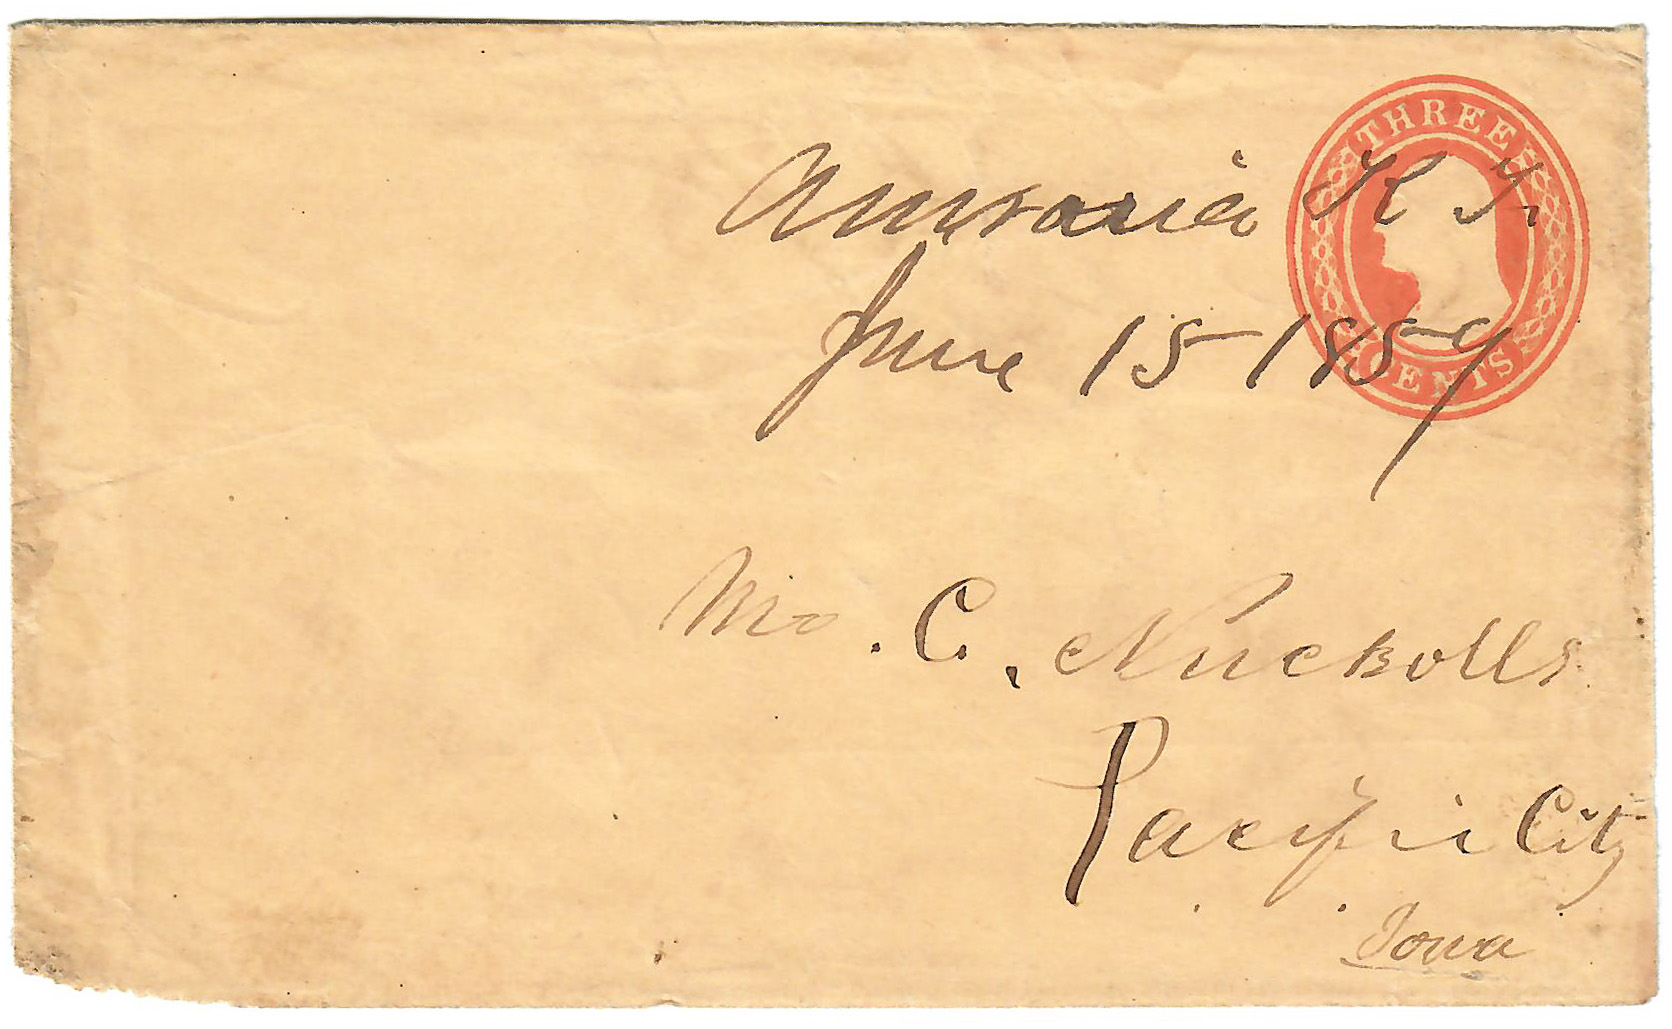 THREE
Auraria K T.
June 15 1859
CENTS
Mr. C. Nuckolls
Pacific City
Iowa